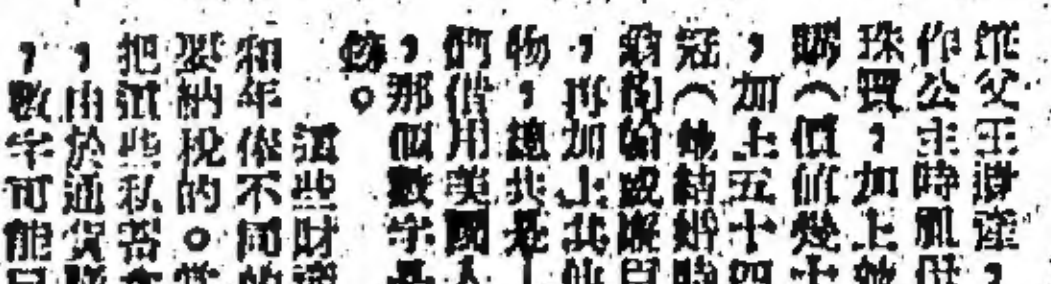 父王遺產，
作公主時
珠寶，加上她
購（價值幾十
，加上五十四
冠（她結婚時
翁的
，再加上其他
物，總共是
們借用美國人
，那個數字是
鎊。
這些財
和年俸不同的
要納稅的。當
把這些私蓄
，由於通貨膨
，數字可能